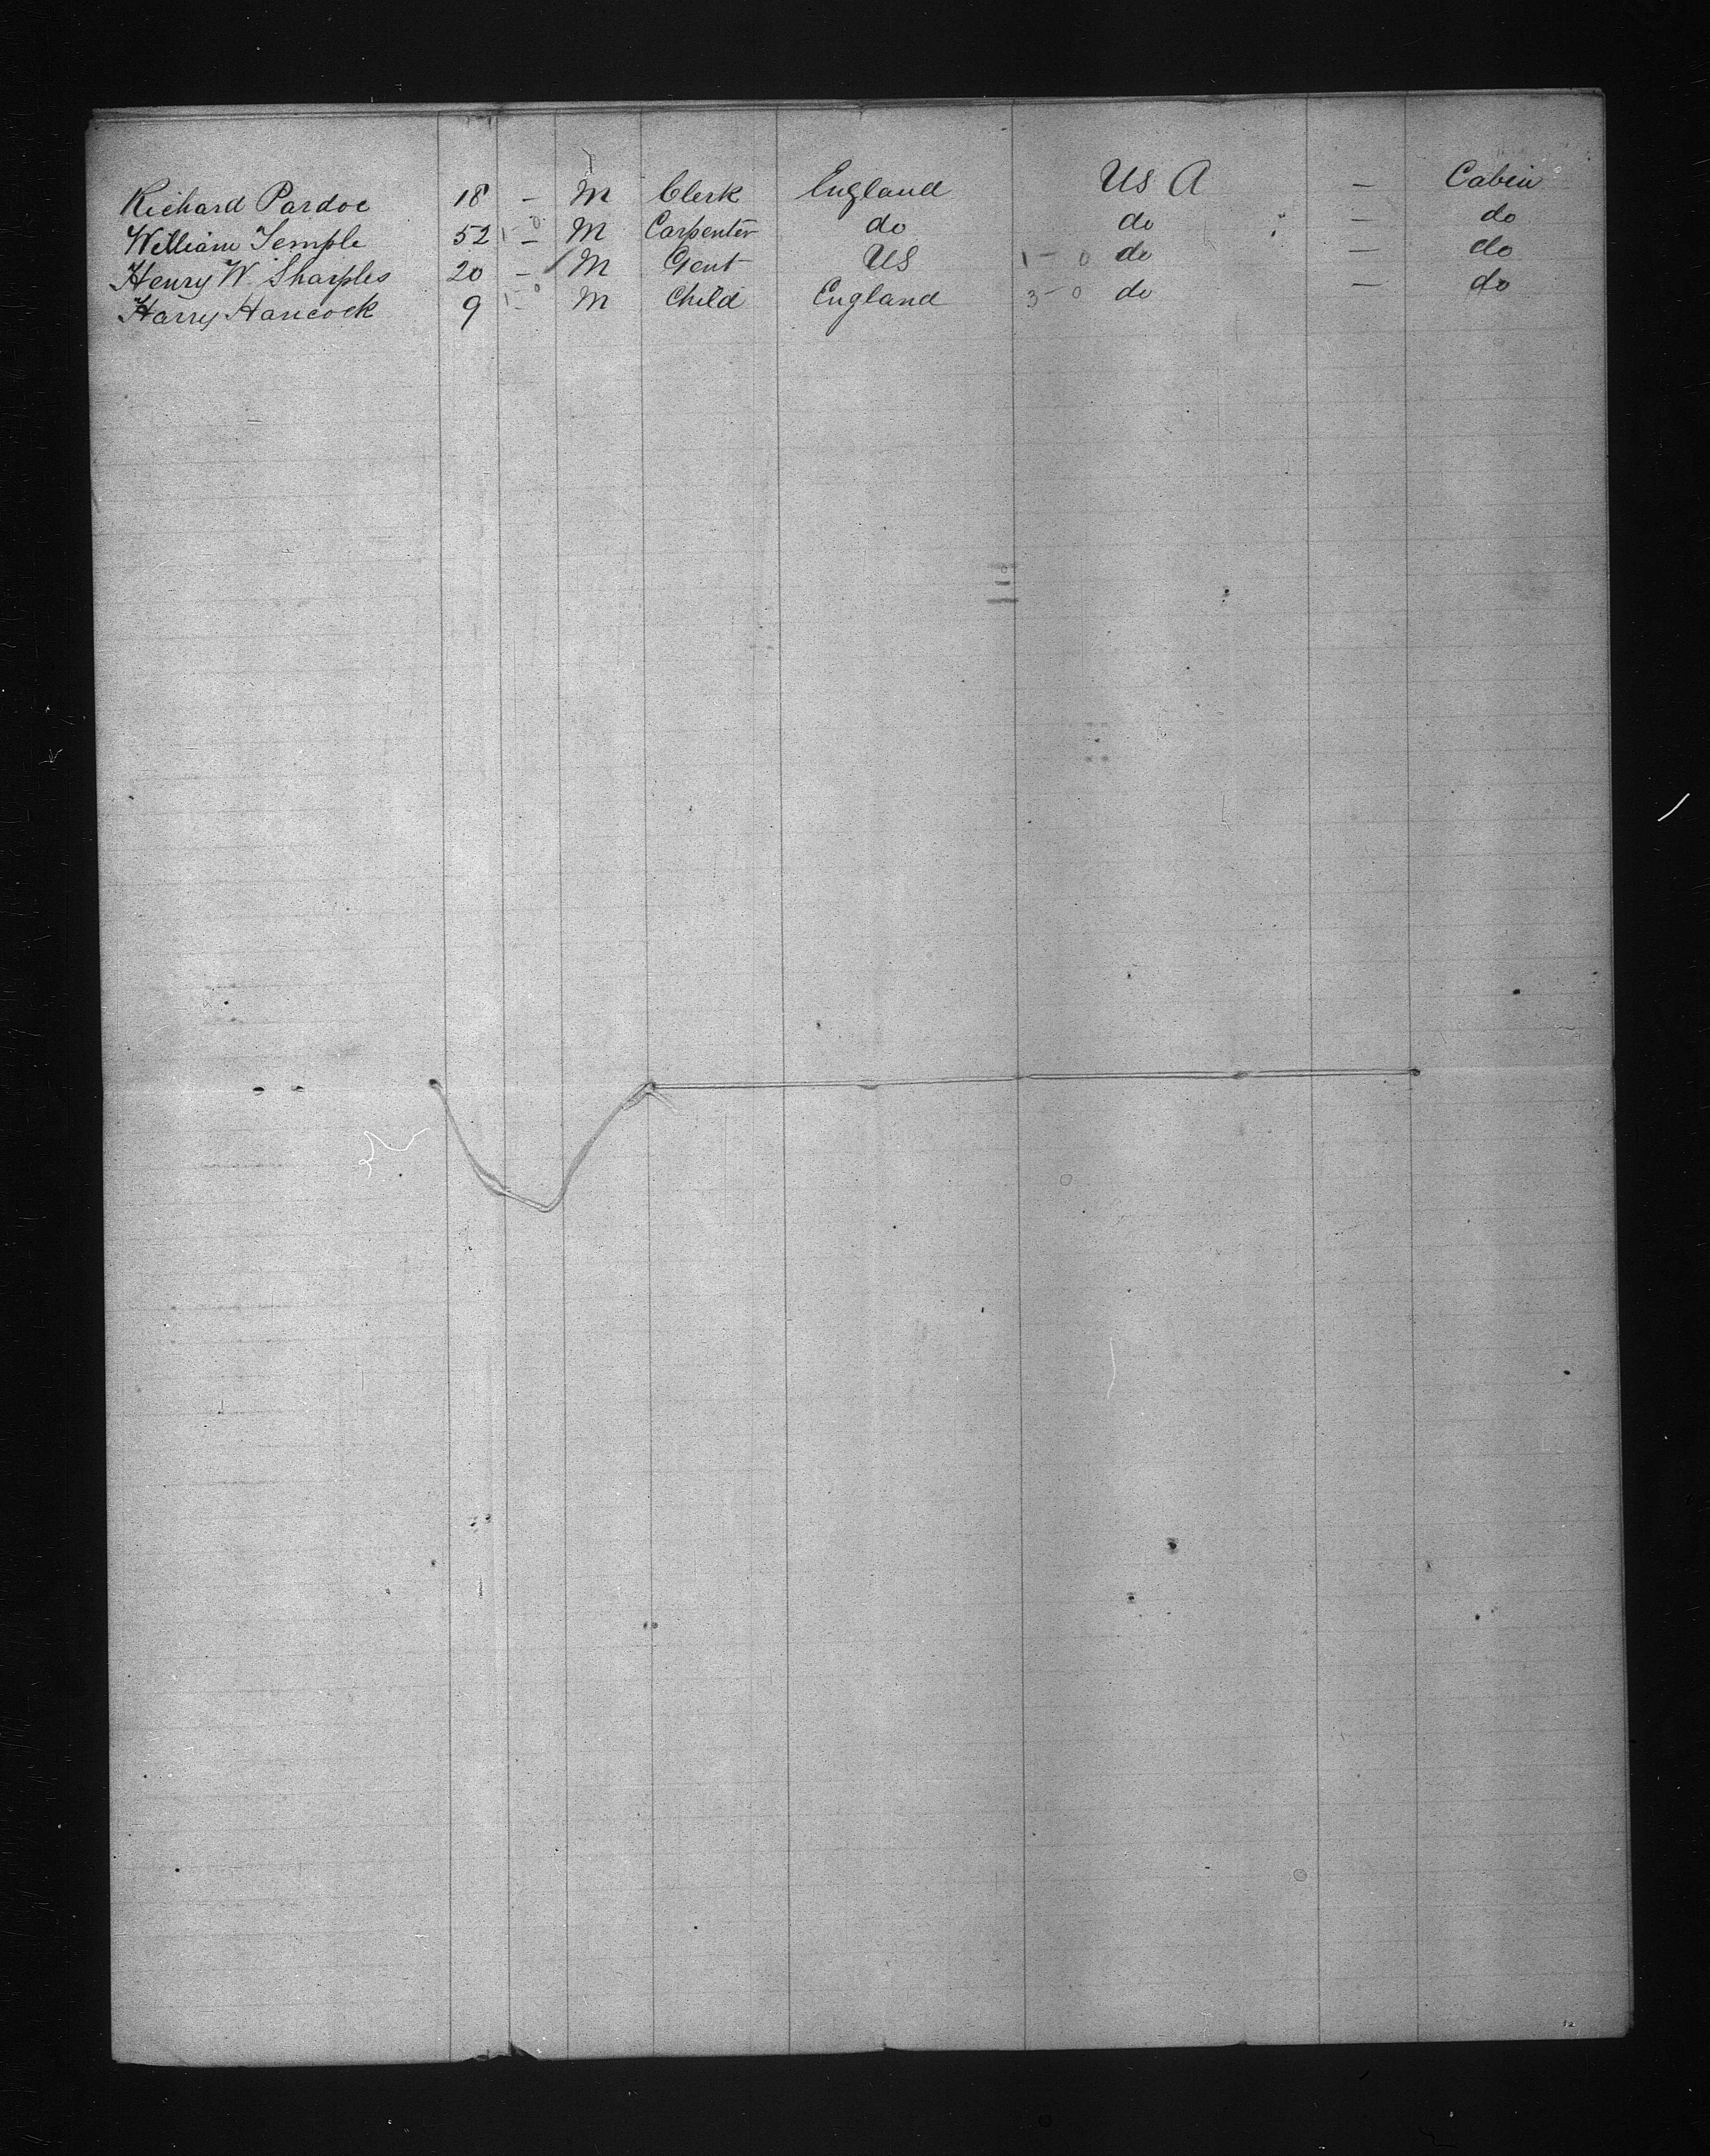 Richard Pardoe 18 – M Clerk England US A – Cabin
William Temple 52 – M Carpenter do do – do
Henry W. Sharples 20 – M Gent US 1 – 0 do – do
Harry Hancock 9 – M Child England 3 – 0 do – do